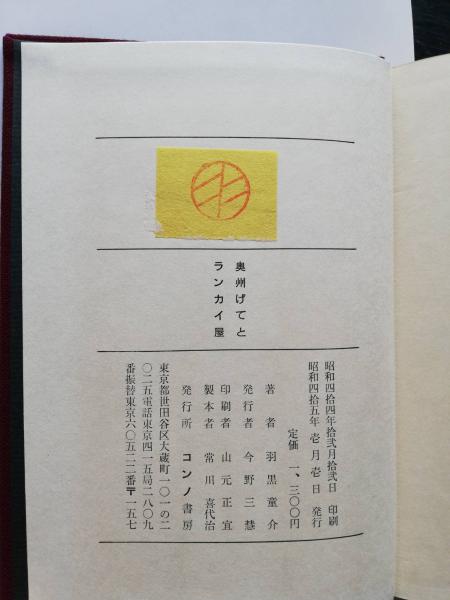 奥州げてと
ランカイ屋
昭和四拾四年拾弐月拾弐日 印刷
昭和四拾五年壱月壱日 発行
定価 一、三〇〇円
著者 羽黒童介
発行者 今野三慧
印刷者 山元正宜
製本者 常川喜代治
発行所 コンノ書房
東京都世田谷区大蔵町一〇一の二
〇二五電話東京四一五局二八〇九
番振替東京六〇五二二番〒一五七